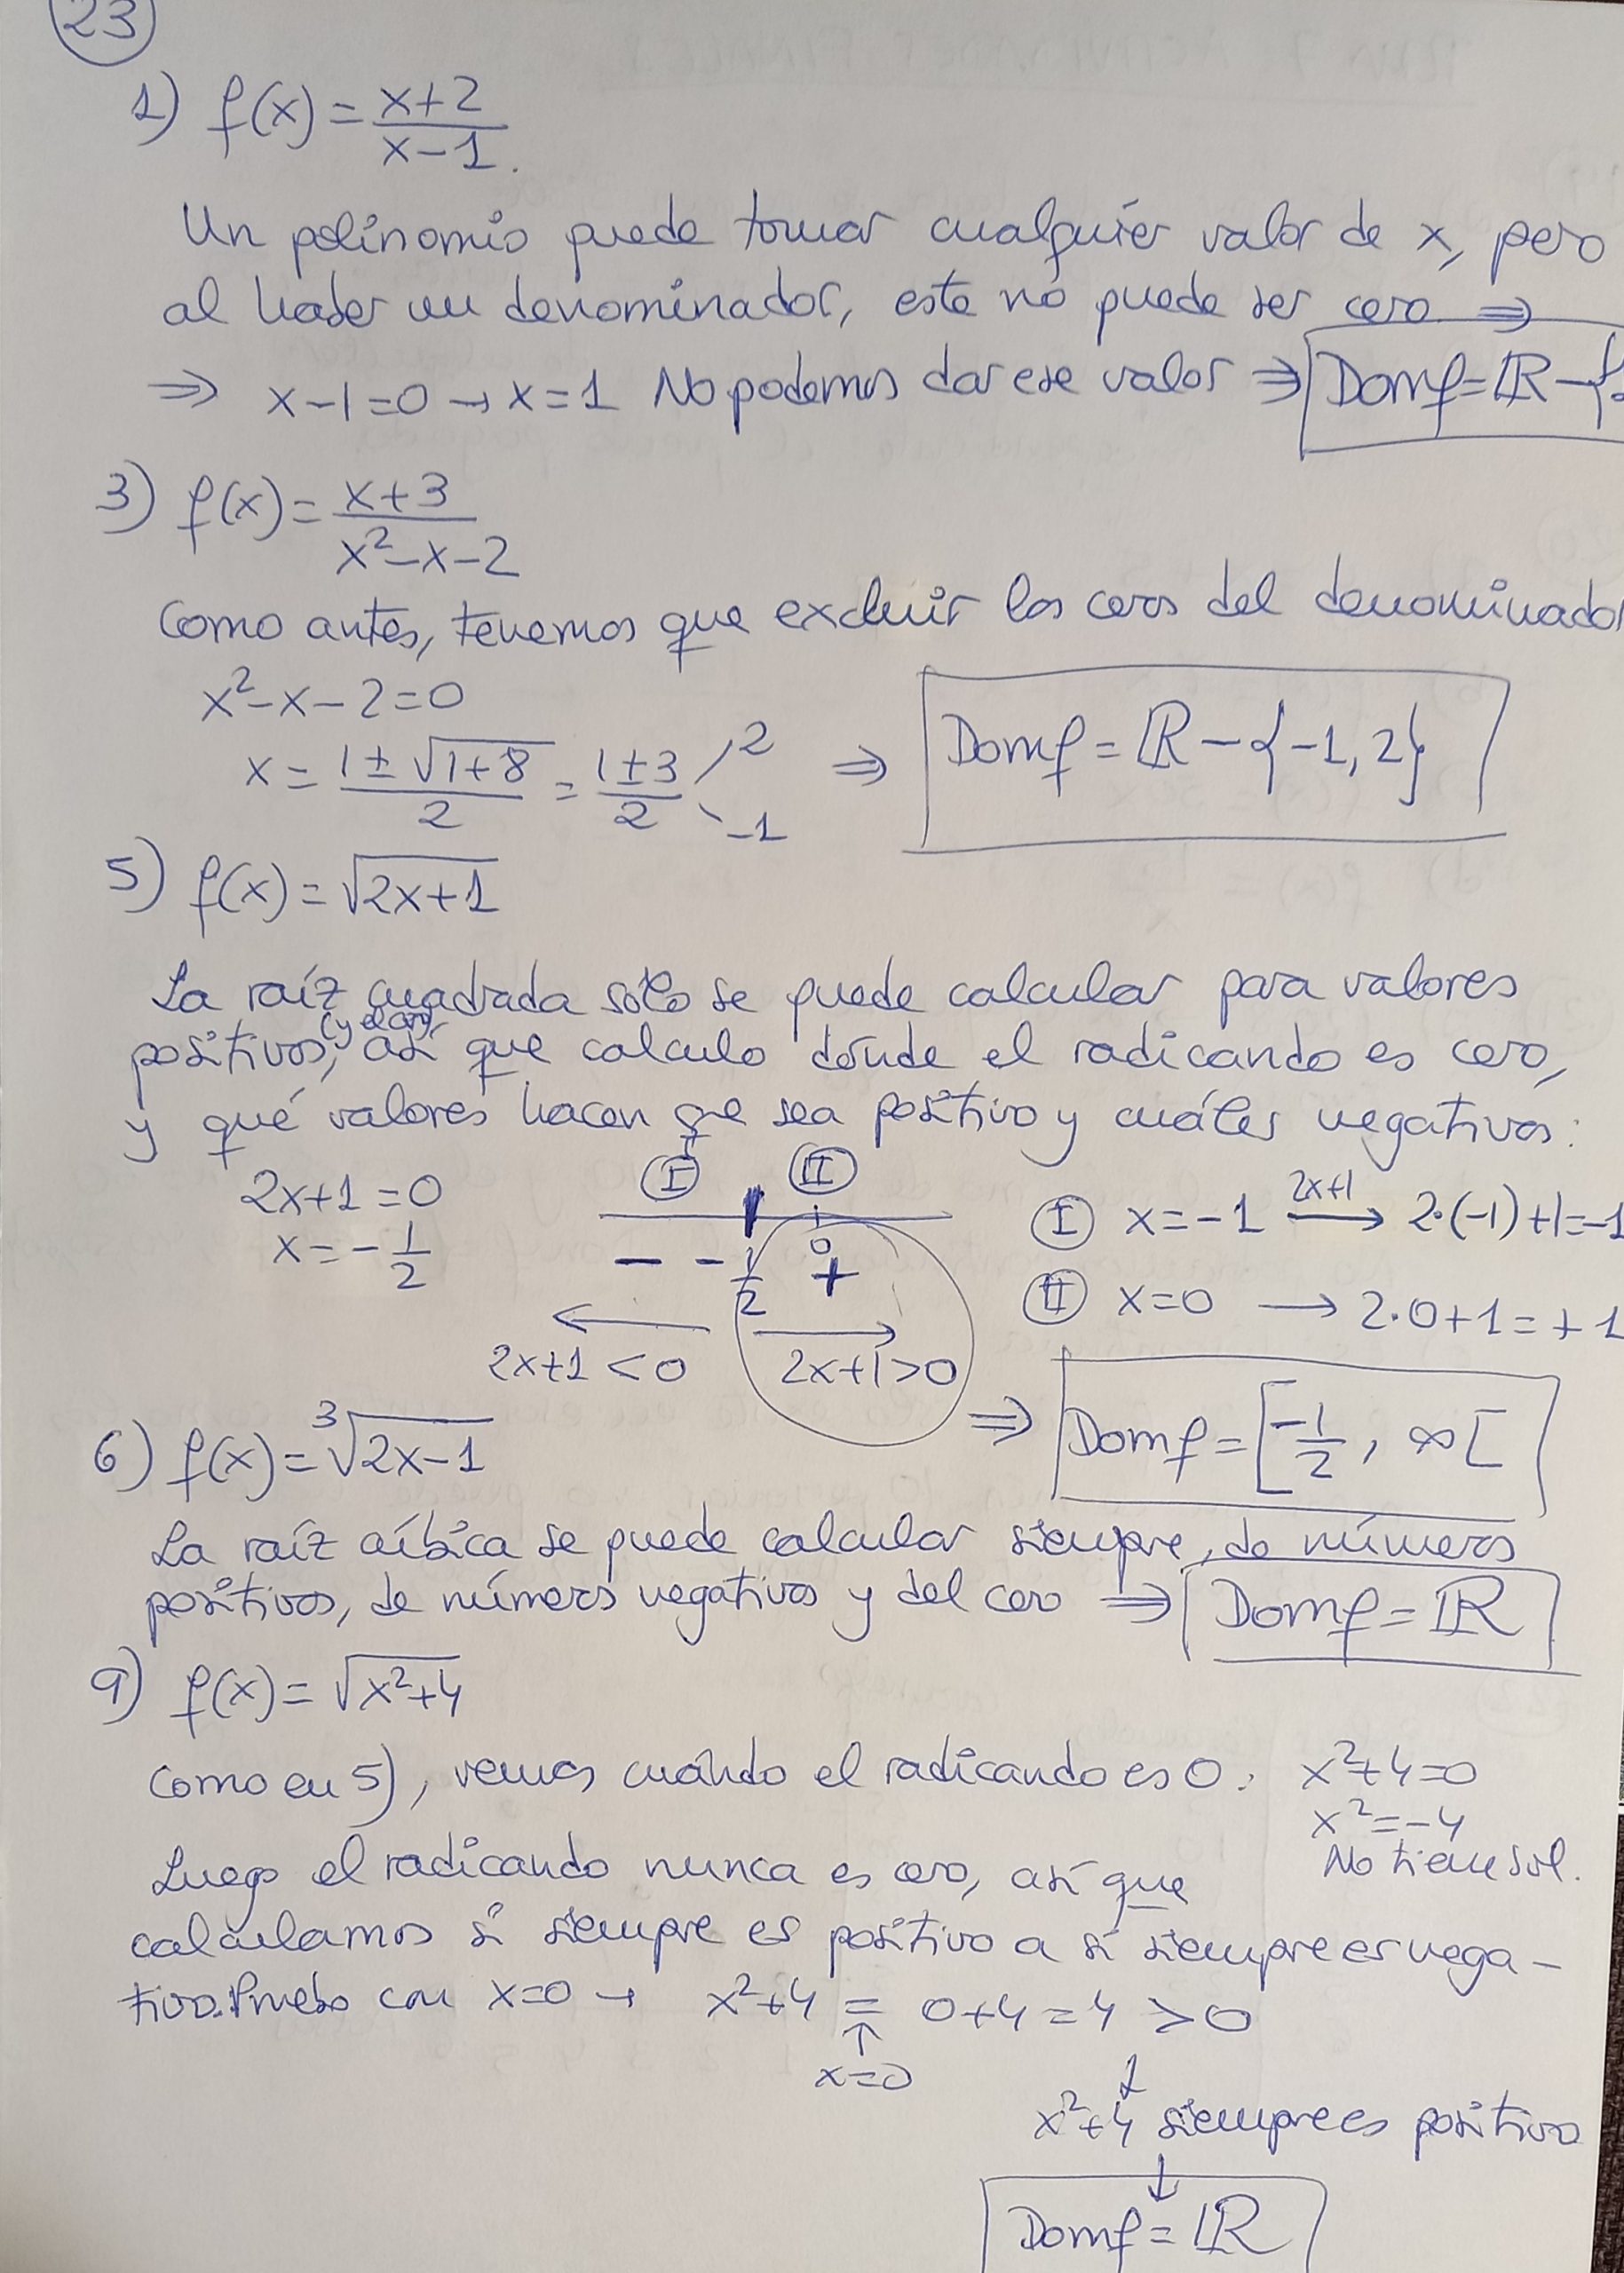 23
1) f(x) = (x+2)/(x-1).
Un polinomio puede tomar cualquier valor de x, pero
al haber un denominador, este no puede ser cero ⇒
⇒ x-1=0 → x=1 No podemos dar ese valor ⇒ Domf = ℝ - {
3) f(x) = (x+3)/(x²-x-2)
Como antes, tenemos que excluir los ceros del denominador
x²-x-2=0
x = (1±√(1+8))/2 = (1±3)/2 2 -1 ⇒ Domf = ℝ - {-1, 2}
5) f(x) = √(2x+1)
La raíz cuadrada sólo se puede calcular para valores
positivos (y el cero), así que calculo dónde el radicando es cero,
y qué valores hacen que sea positivo y cuáles negativos:
2x+1=0
x = -1/2
I II
- -1/2 0 +
2x+1<0 2x+1>0
I x=-1 →(2x+1) 2·(-1)+1=-1
II x=0 → 2·0+1=+1
⇒ Domf = [-1/2, ∞[
6) f(x) = ³√(2x-1)
La raíz cúbica se puede calcular siempre, de números
positivos, de números negativos y del cero ⇒ Domf = ℝ
9) f(x) = √(x²+4)
Como en 5), vemos cuándo el radicando es 0: x²+4=0
x²=-4
No tiene sol.
Luego el radicando nunca es cero, así que
calculamos si siempre es positivo o si siempre es nega-
tivo. Pruebo con x=0 → x²+4 = 0+4=4 >0
↑
x=0
↓
x²+4 siempre es positivo
↓
Domf = ℝ